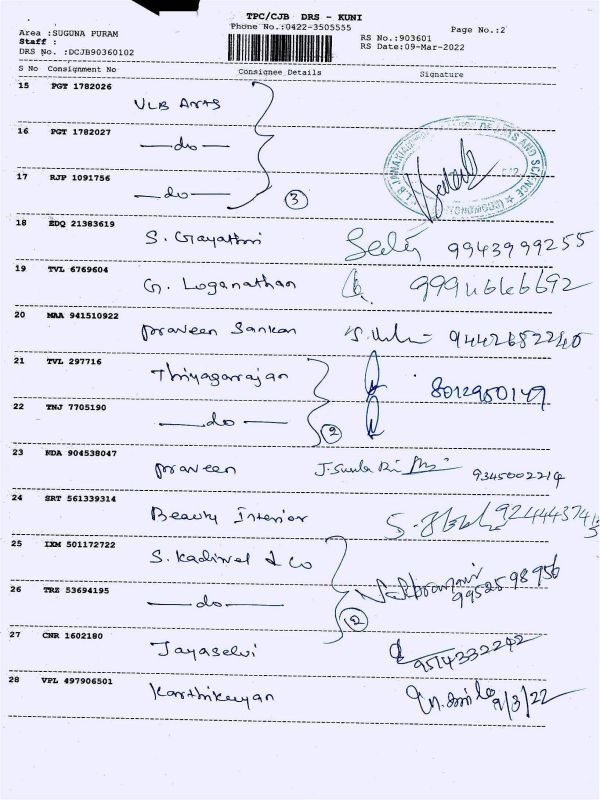 TPC/CJB DRS - KUNI
Phone No.:0422-3505555
Page No.:2
Area :SUGUNA PURAM
Staff :
DRS No. :DCJB90360102
RS No.:903601
RS Date:09-Mar-2022
S No Consignment No Consignee Details Signature
15 PGT 1782026 VLB Arts
16 PGT 1782027 —do—
17 RJP 1091756 —do— 3
ARTS AND SCIENCE
18 EDQ 21383619 S. Gayathri 9943999255
19 TVL 6769604 G. Loganathan 9994646692
20 MAA 941510922 Praveen Sankar 9442682240
21 TVL 297716 Thiyagarajan 8012950149
22 TNJ 7705190 —do— 2
23 NDA 904538047 Praveen 9345002214
24 SRT 561339314 Beauty Interior
25 IXM 501172722 S. Kadirvel & Co 9952598956
26 TRZ 53694195 —do— 2
27 CNR 1602180 Jayaselvi 9514332242
28 VPL 497906501 Karthikeyan 9/3/22